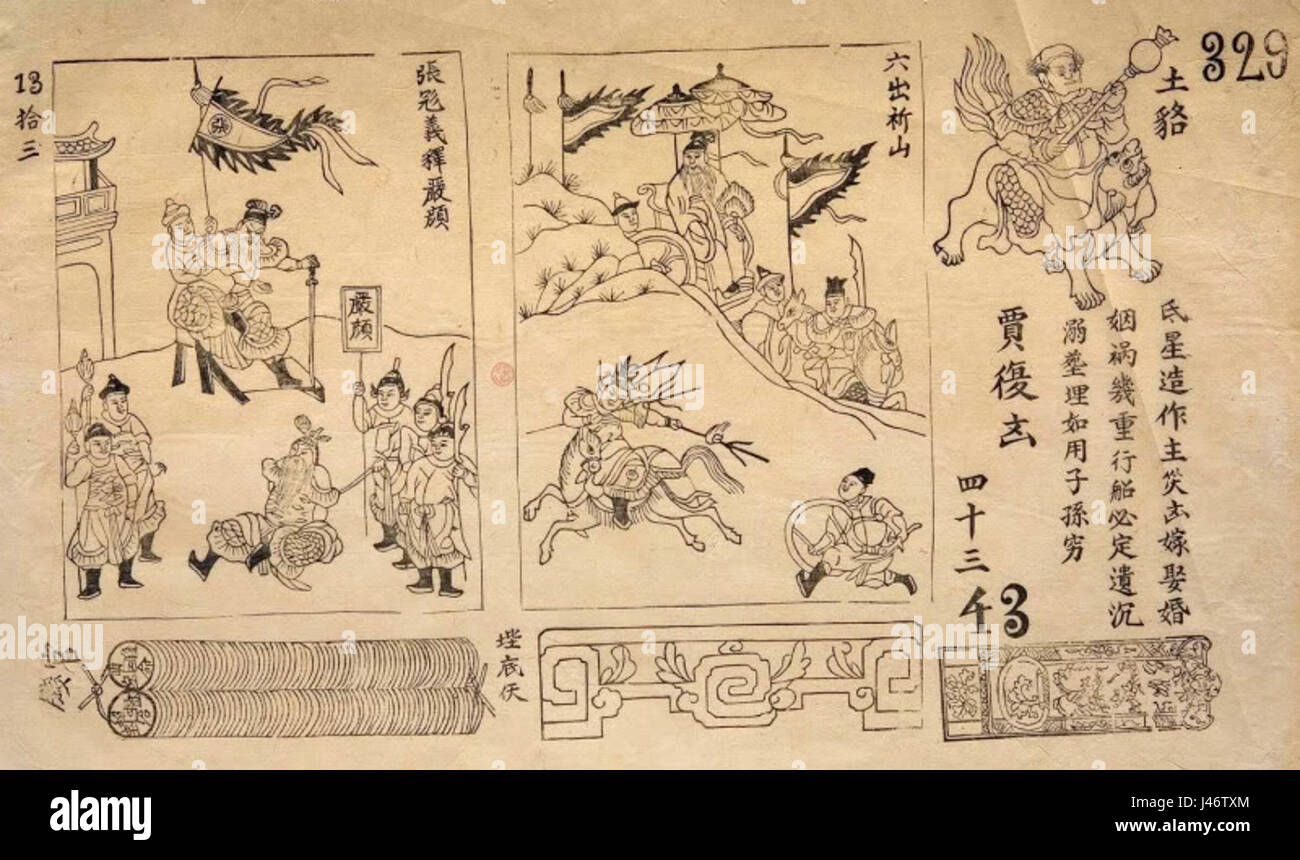 329
土貉
氐星造作主災㐫嫁娶婚
姻祸幾重行船必定遺沉
溺塟埋如用子孫穷
賈復㐫
四十三
43
六出祈山
張飛義釋嚴顔
張
嚴顔
13
拾三
a alamy stock photo
J46TXM
www.alamy.com